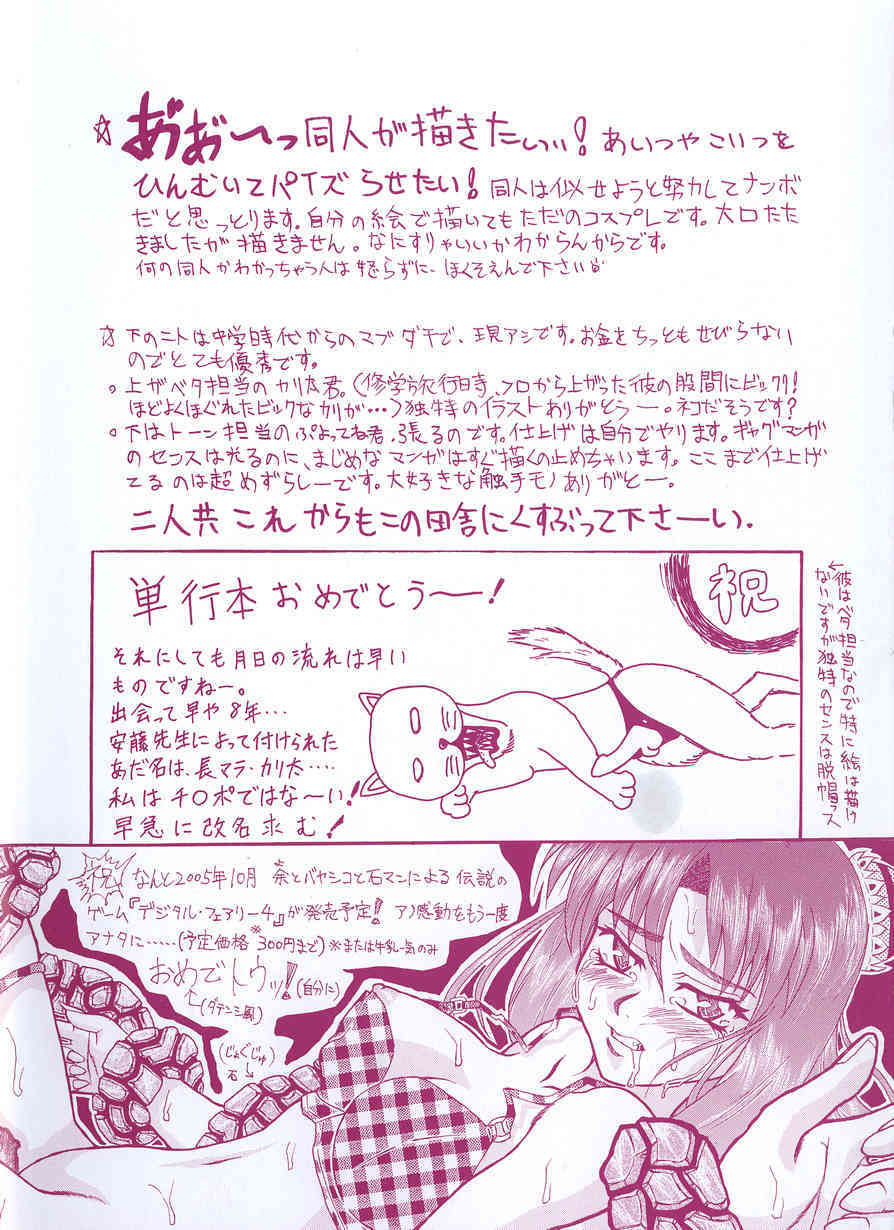 ☆ あ゛お゛〜っ同人が描きたいっ!あいつやこいつを
ひんむいてパイズらせたい!同人は似せようと努力してナンボ
だと思っとります。自分の絵で描いてもただのコスプレです。大口たた
きましたが描きません。なにすりゃいいかわからんからです。
何の同人かわかっちゃう人は怒らずに、ほくそえんで下さい
☆ 下の二人は中学時代からのマブダチで、現アシです。お金をちっともせびらない
のでとても優秀です。
。上がベタ担当のカリ太君。(修学旅行時、フロから上がった彼の股間にビックリ!
ほどよくほぐれたビックなカリが…)独特のイラストありがとうー。ネコだそうです?
。下はトーン担当のぷよってね君、張るのです。仕上げは自分でやります。ギャグマンガ
のセンスは光るのに、まじめなマンガはすぐ描くの止めちゃいます。ここまで仕上げ
てるのは超めずらしーです。大好きな触手モノありがとー。
二人共これからもこの田舎にくすぶって下さーい.
単行本おめでとうー!
祝
それにしても月日の流れは早い
ものですねー。
出会って早や8年…
安藤先生によって付けられた
あだ名は、長マラ・カリ太….
私はチ〇ポではな〜い!
早急に改名求む!
←彼はベタ担当なので特に絵は描け
ないですが独特のセンスは脱帽っス
祝
なんと2005年10月 余とバヤシコと石マンによる伝説の
ゲーム『デジタル・フェアリー4』が発売予定!! アノ感動をもう一度
アナタに……(予定価格※300円まで)※または牛乳一気のみ
おめでトウッ!!(自分に)
(ダテンシ風)
(じょぐじゅ)
石